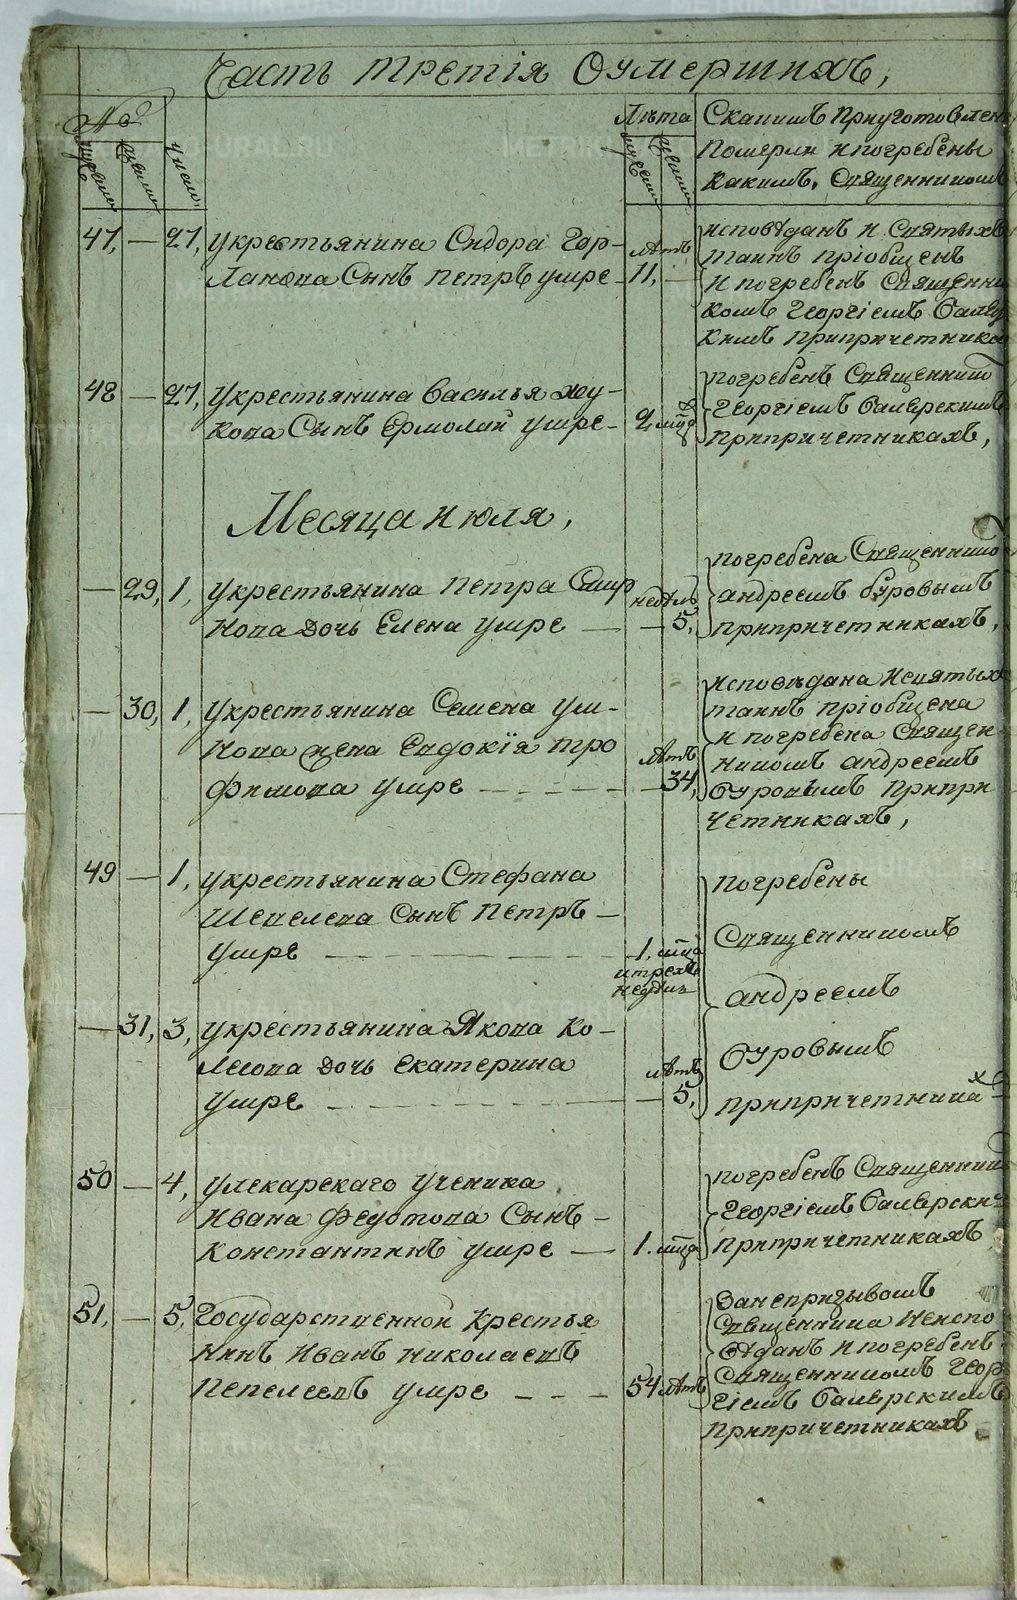 Часть третія Оумершихъ,
№
мужеска
женска
число
Лѣта
мужеска
женска
Скакимъ Приуготовлен
Померли и погребены
какимъ, Священником
47, — 27, Укрестьянина Сидора Гор-
лапова Сынъ Петръ умре
лѣтъ
11,
исповѣданъ и Святыхъ
таинъ пріобщенъ
и погребенъ Священни
комъ Георгіемъ
кимъ Припричетника
48 — 27, Укрестьянина Василья Жу-
кова Сынъ Ермолай умре
2 мцд
погребенъ Священнико
Георгіемъ
Припричетникахъ,
Месяца июля,
— 29, 1, Укрестьянина Петра Смир
нова дочь Елена умре
недѣль
5,
погребена Священнико
андреемъ Буровымъ
припричетникахъ,
— 30, 1, Укрестьянина Семена Ум-
нова жена Евдокїя Тро
фимова умре
лѣтъ
34,
исповѣдана Исвятыхъ
таинъ пріобщена
и погребена Священ-
никомъ андреемъ
Буровымъ Припри
четникахъ,
49 — 1, укрестьянина Стефана
Шевелева Сынъ Петръ —
умре
1, мца
итрехъ
недѣль
погребены
Священникомъ
андреемъ
Буровымъ
припричетникахъ
— 31, 3, укрестьянина Якова Ко-
лесова дочь Екатерина
умре
лѣтъ
5,
50 — 4, улекарскаго ученика
Ивана Федотова Сынъ —
Константинъ умре —
1. мца
погребенъ Священник
Георгіемъ
припричетникахъ
51, — 5, Государственной крестья
нинъ Иванъ Николаевъ
Пепелевъ умре
54 лѣтъ
Занепризывомъ
Священника Неиспо
вѣданъ и погребенъ
Священникомъ Геор
гіемъ
Припричетникахъ